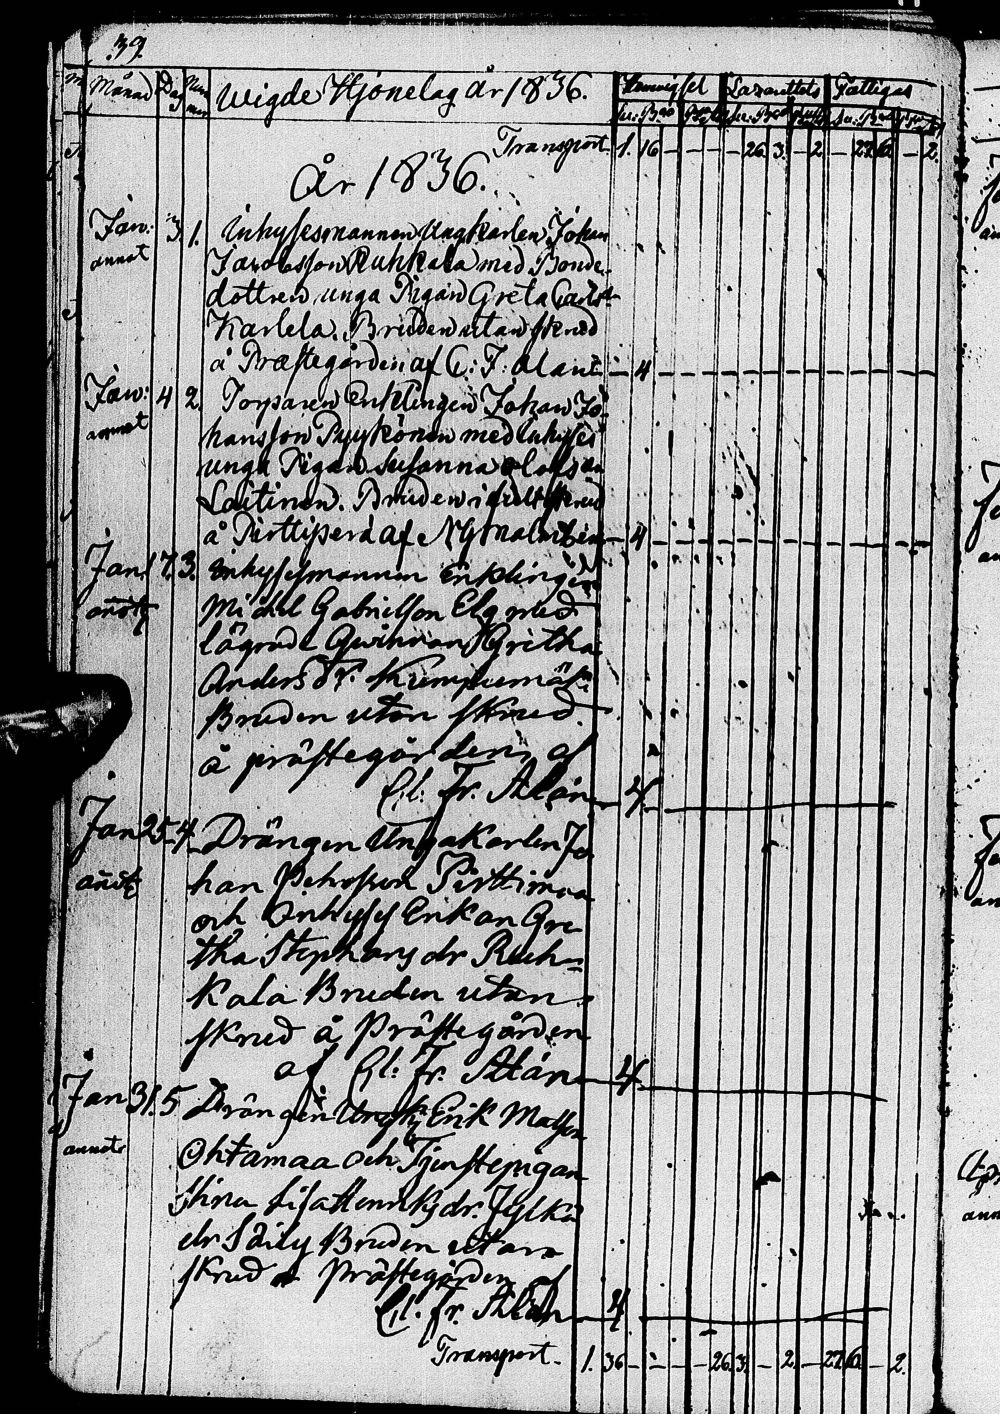 39.
Månad Dag Num mer Wigde Hjonelag År 1836. Hemvigsel Lazarettets Fattigas
Transport 1. 16 — — — — 26. 3. — 2 — 27. 6. — 2.
År 1836.
Jan: 3. 1. Inhysesmannen Ungkarlen Johan
annot Jacobsson Ruhkala med Bonde-
dottren unga Pigan Greta Carlsdr
Karlela. Bruden utan skrud
å Præstegården af C: F. Alant — 4
Jan: 4 2. Torparen Enklingen Johan Jo-
annot hansson Pyykönen med Inhyses
unga Pigan Susanna Olofsdr
Laitinen. Bruden i skrud
å Pirttiperä af — 4
Jan 17. 3. Inhysesmannen Enklingen
annot Michel Gabrielson Elg med
lägrade Qwinnan Gretha
Anders Dr.
Bruden utan skrud.
å prästegården, af
Cl: Fr. Alán — 4
Jan 25 4. Drängen Unga Karlen Jo
annot han Pehrsson Pirttimaa
och Inhyses Enkan Gre
tha Stephans dr Ruh=
kala Bruden utan
skrud å Prästegården
af Cl: Fr. Alán — 4
Jan 31. 5 Drängen Ungk: Erik Matsson
annot Ohtamaa och Tjenstepigan
Stina Lisa Henriks dr. Jylkä
elr Säily Bruden utan
skrud å Prästegården af
Cl. Fr. Alán — 4
Transport. 1. 36 — — — — 26. 3. — 2. — 27. 6. — 2.